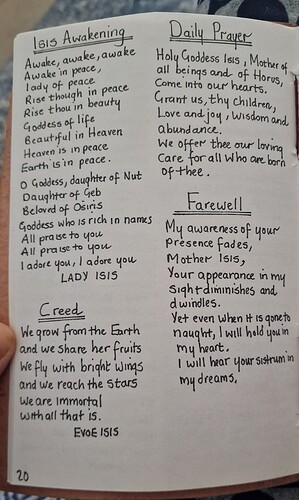 Isis Awakening
Awake, awake, awake
Awake in peace,
lady of peace
Rise though in peace
Rise thou in beauty
Goddess of life
Beautiful in Heaven
Heaven is in peace
Earth is in peace.
O Goddess, daughter of Nut
Daughter of Geb
Beloved of Osiris
Goddess who is rich in names
All praise to you
All praise to you
I adore you, I adore you
LADY ISIS
Creed
We grow from the Earth
and we share her fruits
We fly with bright wings
and we reach the stars
We are immortal
with all that is.
EVOE ISIS
20
Daily Prayer
Holy Goddess Isis, Mother of
all beings and of Horus,
Come into our hearts.
Grant us, thy children,
Love and joy, wisdom and
abundance.
We offer thee our loving
Care for all who are born
of thee.
Farewell
My awareness of your
presence fades,
Mother ISIS,
Your appearance in my
sight diminishes and
dwindles.
Yet even when it is gone to
naught, I will hold you in
my heart.
I will hear your sistrum in
my dreams,